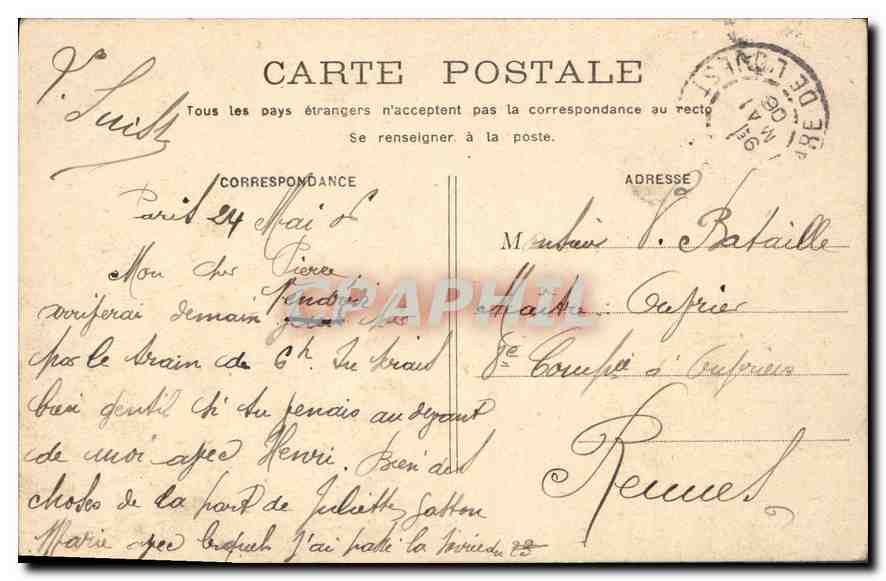 CARTE POSTALE
Tous les pays étrangers n'acceptent pas la correspondance au recto
Se renseigner à la poste.
CORRESPONDANCE
ADRESSE
RE DE L'OUEST
MAI
06
Paris 24 Mai 06
Mon cher Pierre
demain Vendredi
par le train de 6h. Tu serais
bien gentil si tu venais au devant
de moi avec Henri. Bien des
choses de la part de Juliette, Gaston
Marie avec lesquels j'ai passé la soirée du 23
Monsieur P. Bataille
Maître Ouvrier
8e Compie d'Ouvriers
Rennes
CPAPHIL